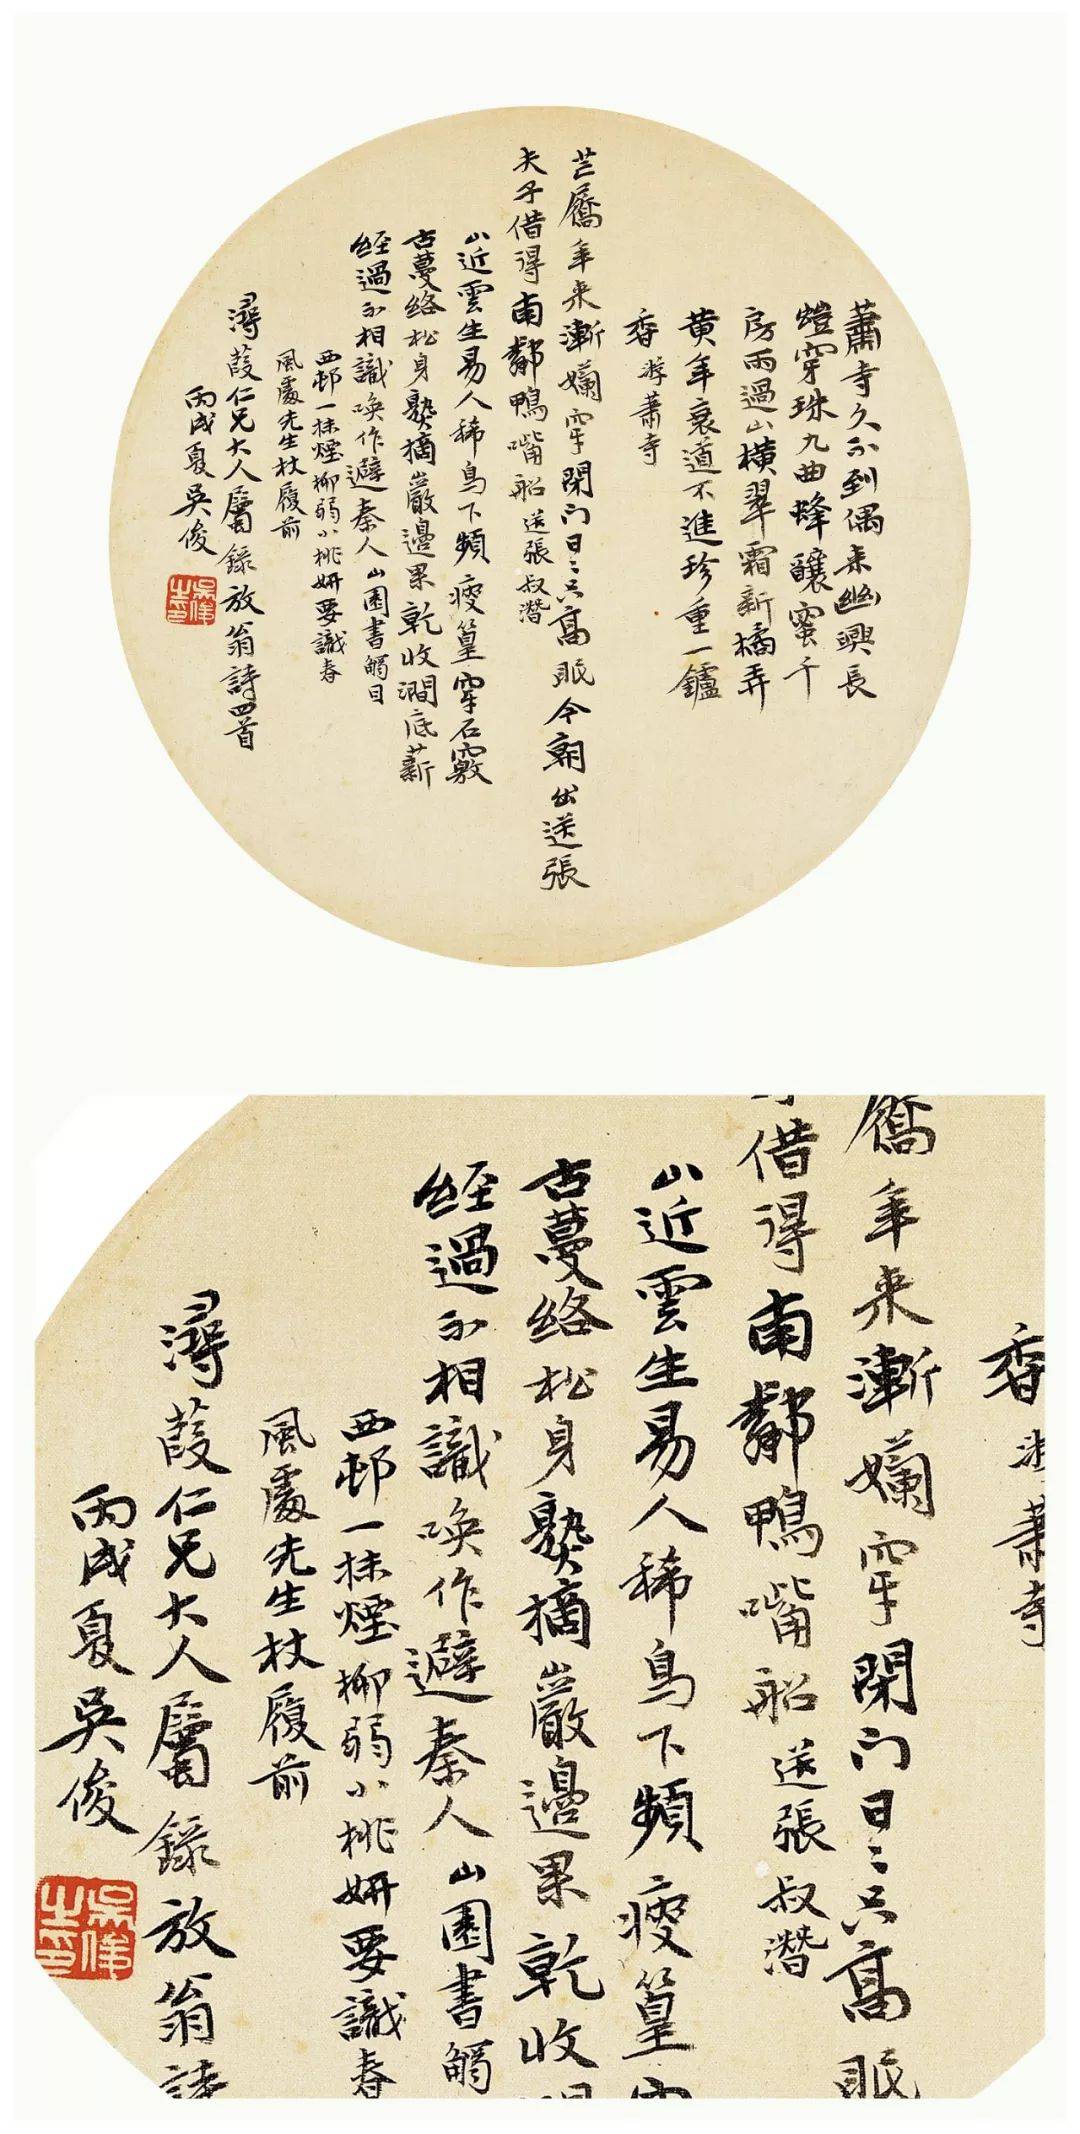 蕭寺久不到偶来幽興長
燈穿珠九曲蜂釀蜜千
房雨過山橫翠霜新橘弄
黄年衰道不進珍重一鑪
香 游蕭寺
芒屩年来漸嬾穿閑门日〻只高眠今朝出送張
夫子借得南鄰鴨嘴船 送張叔潛
山近雲生易人稀鳥下頻瘦篁穿石竅
古蔓絡松身熟摘巖邊果乾收澗底薪
經過不相識喚作避秦人 山園書觸目
西邨一抹煙柳弱小桃妍要識春
風處先生杖履前
潯葭仁兄大人屬錄放翁詩四首
丙戌夏吳俊
吳俊之印
香 游蕭寺
屩年来漸嬾穿閑门日〻只高眠
借得南鄰鴨嘴船 送張叔潛
山近雲生易人稀鳥下頻瘦篁穿
古蔓絡松身熟摘巖邊果乾收澗
經過不相識喚作避秦人 山園書觸
西邨一抹煙柳弱小桃妍要識春
風處先生杖履前
潯葭仁兄大人屬錄放翁詩
丙戌夏吳俊
吳俊之印